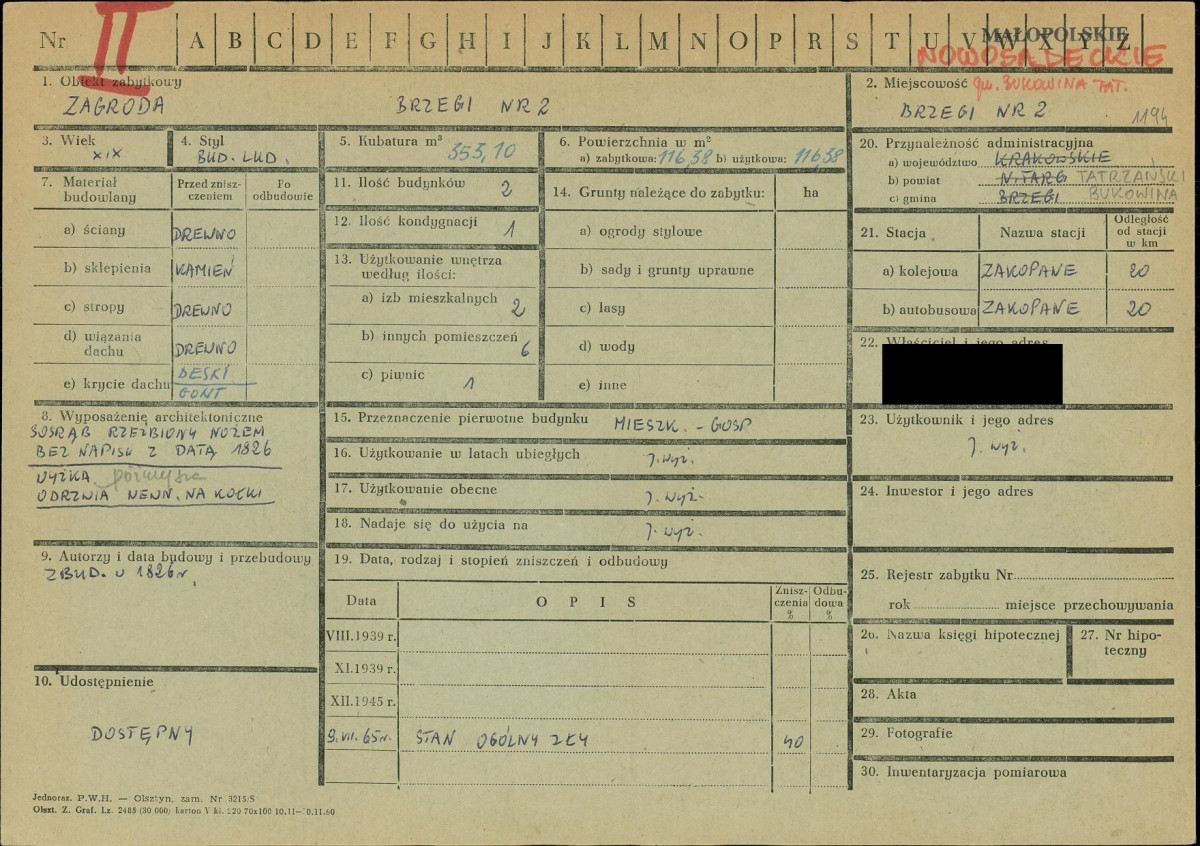 Nr II A B C D E F G H I J K L M N O P R S T U V W X Y Z
MAŁOPOLSKIE
NOWOSĄDECKIE
1. Obiekt zabytkowy
ZAGRODA BRZEGI NR 2
2. Miejscowość gm. BUKOWINA TAT.
BRZEGI NR 2 1194
3. Wiek
XIX
4. Styl
BUD. LUD.
5. Kubatura m³ 353,10
6. Powierzchnia w m²
a) zabytkowa: 116,38 b) użytkowa: 116,38
7. Materiał budowlany
Przed zniszczeniem
Po odbudowie
a) ściany DREWNO
b) sklepienia KAMIEŃ
c) stropy DREWNO
d) wiązania dachu DREWNO
e) krycie dachu DESKI
GONT
8. Wyposażenie architektoniczne
SOSRĄB RZEŹBIONY NOŻEM
BEZ NAPISU Z DATĄ 1826
WYŻKA
ODRZWIA WEWN. NA KOŁKI
9. Autorzy i data budowy i przebudowy
ZBUD. W 1826 r.
10. Udostępnienie
DOSTĘPNY
11. Ilość budynków 2
12. Ilość kondygnacji 1
13. Użytkowanie wnętrza
według ilości:
a) izb mieszkalnych 2
b) innych pomieszczeń 6
c) piwnic 1
14. Grunty należące do zabytku: ha
a) ogrody stylowe
b) sady i grunty uprawne
c) lasy
d) wody
e) inne
15. Przeznaczenie pierwotne budynku MIESZK. - GOSP
16. Użytkowanie w latach ubiegłych J. wyż.
17. Użytkowanie obecne J. wyż.
18. Nadaje się do użycia na J. wyż.
19. Data, rodzaj i stopień zniszczeń i odbudowy
Data OPIS Zniszczenia % Odbudowa %
VIII.1939 r.
XI.1939 r.
XII.1945 r.
9.VII.65 r. STAN OGÓLNY ZŁY 40
20. Przynależność administracyjna
a) województwo KRAKOWSKIE
b) powiat N.TARG TATRZAŃSKI
c) gmina BRZEGI BUKOWINA
21. Stacja Nazwa stacji Odległość od stacji w km
a) kolejowa ZAKOPANE 20
b) autobusowa ZAKOPANE 20
22. Właściciel i jego adres
23. Użytkownik i jego adres
J. wyż.
24. Inwestor i jego adres
25. Rejestr zabytku Nr
rok miejsce przechowywania
26. Nazwa księgi hipotecznej
27. Nr hipoteczny
28. Akta
29. Fotografie
30. Inwentaryzacja pomiarowa
Jednoraz. P.W.H. — Olsztyn, zam. Nr 3215/S
Olszt. Z. Graf. Lz. 2485 (30 000) karton V kl. 220 70x100 10.11—10.11.60